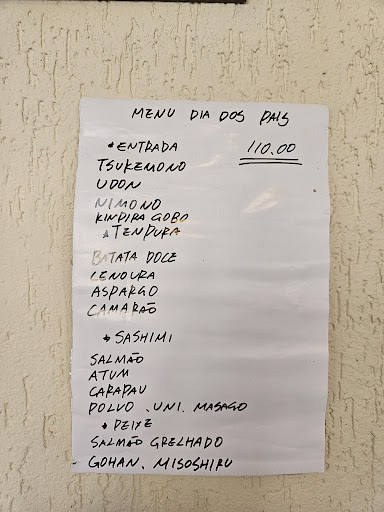 MENU DIA DOS PAIS
• ENTRADA 110.00
TSUKEMONO
UDON
NIMONO
KINPIRA GOBO
• TENPURA
BATATA DOCE
CENOURA
ASPARGO
CAMARÃO
• SASHIMI
SALMÃO
ATUM
CARAPAU
POLVO . UNI. MASAGO
• PEIXE
SALMÃO GRELHADO
- GOHAN. MISOSHIRU